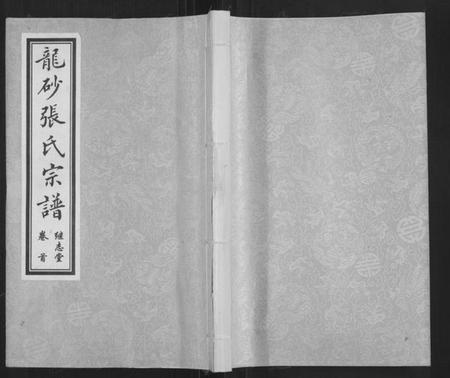 龍砂張氏宗譜
继志堂
卷首